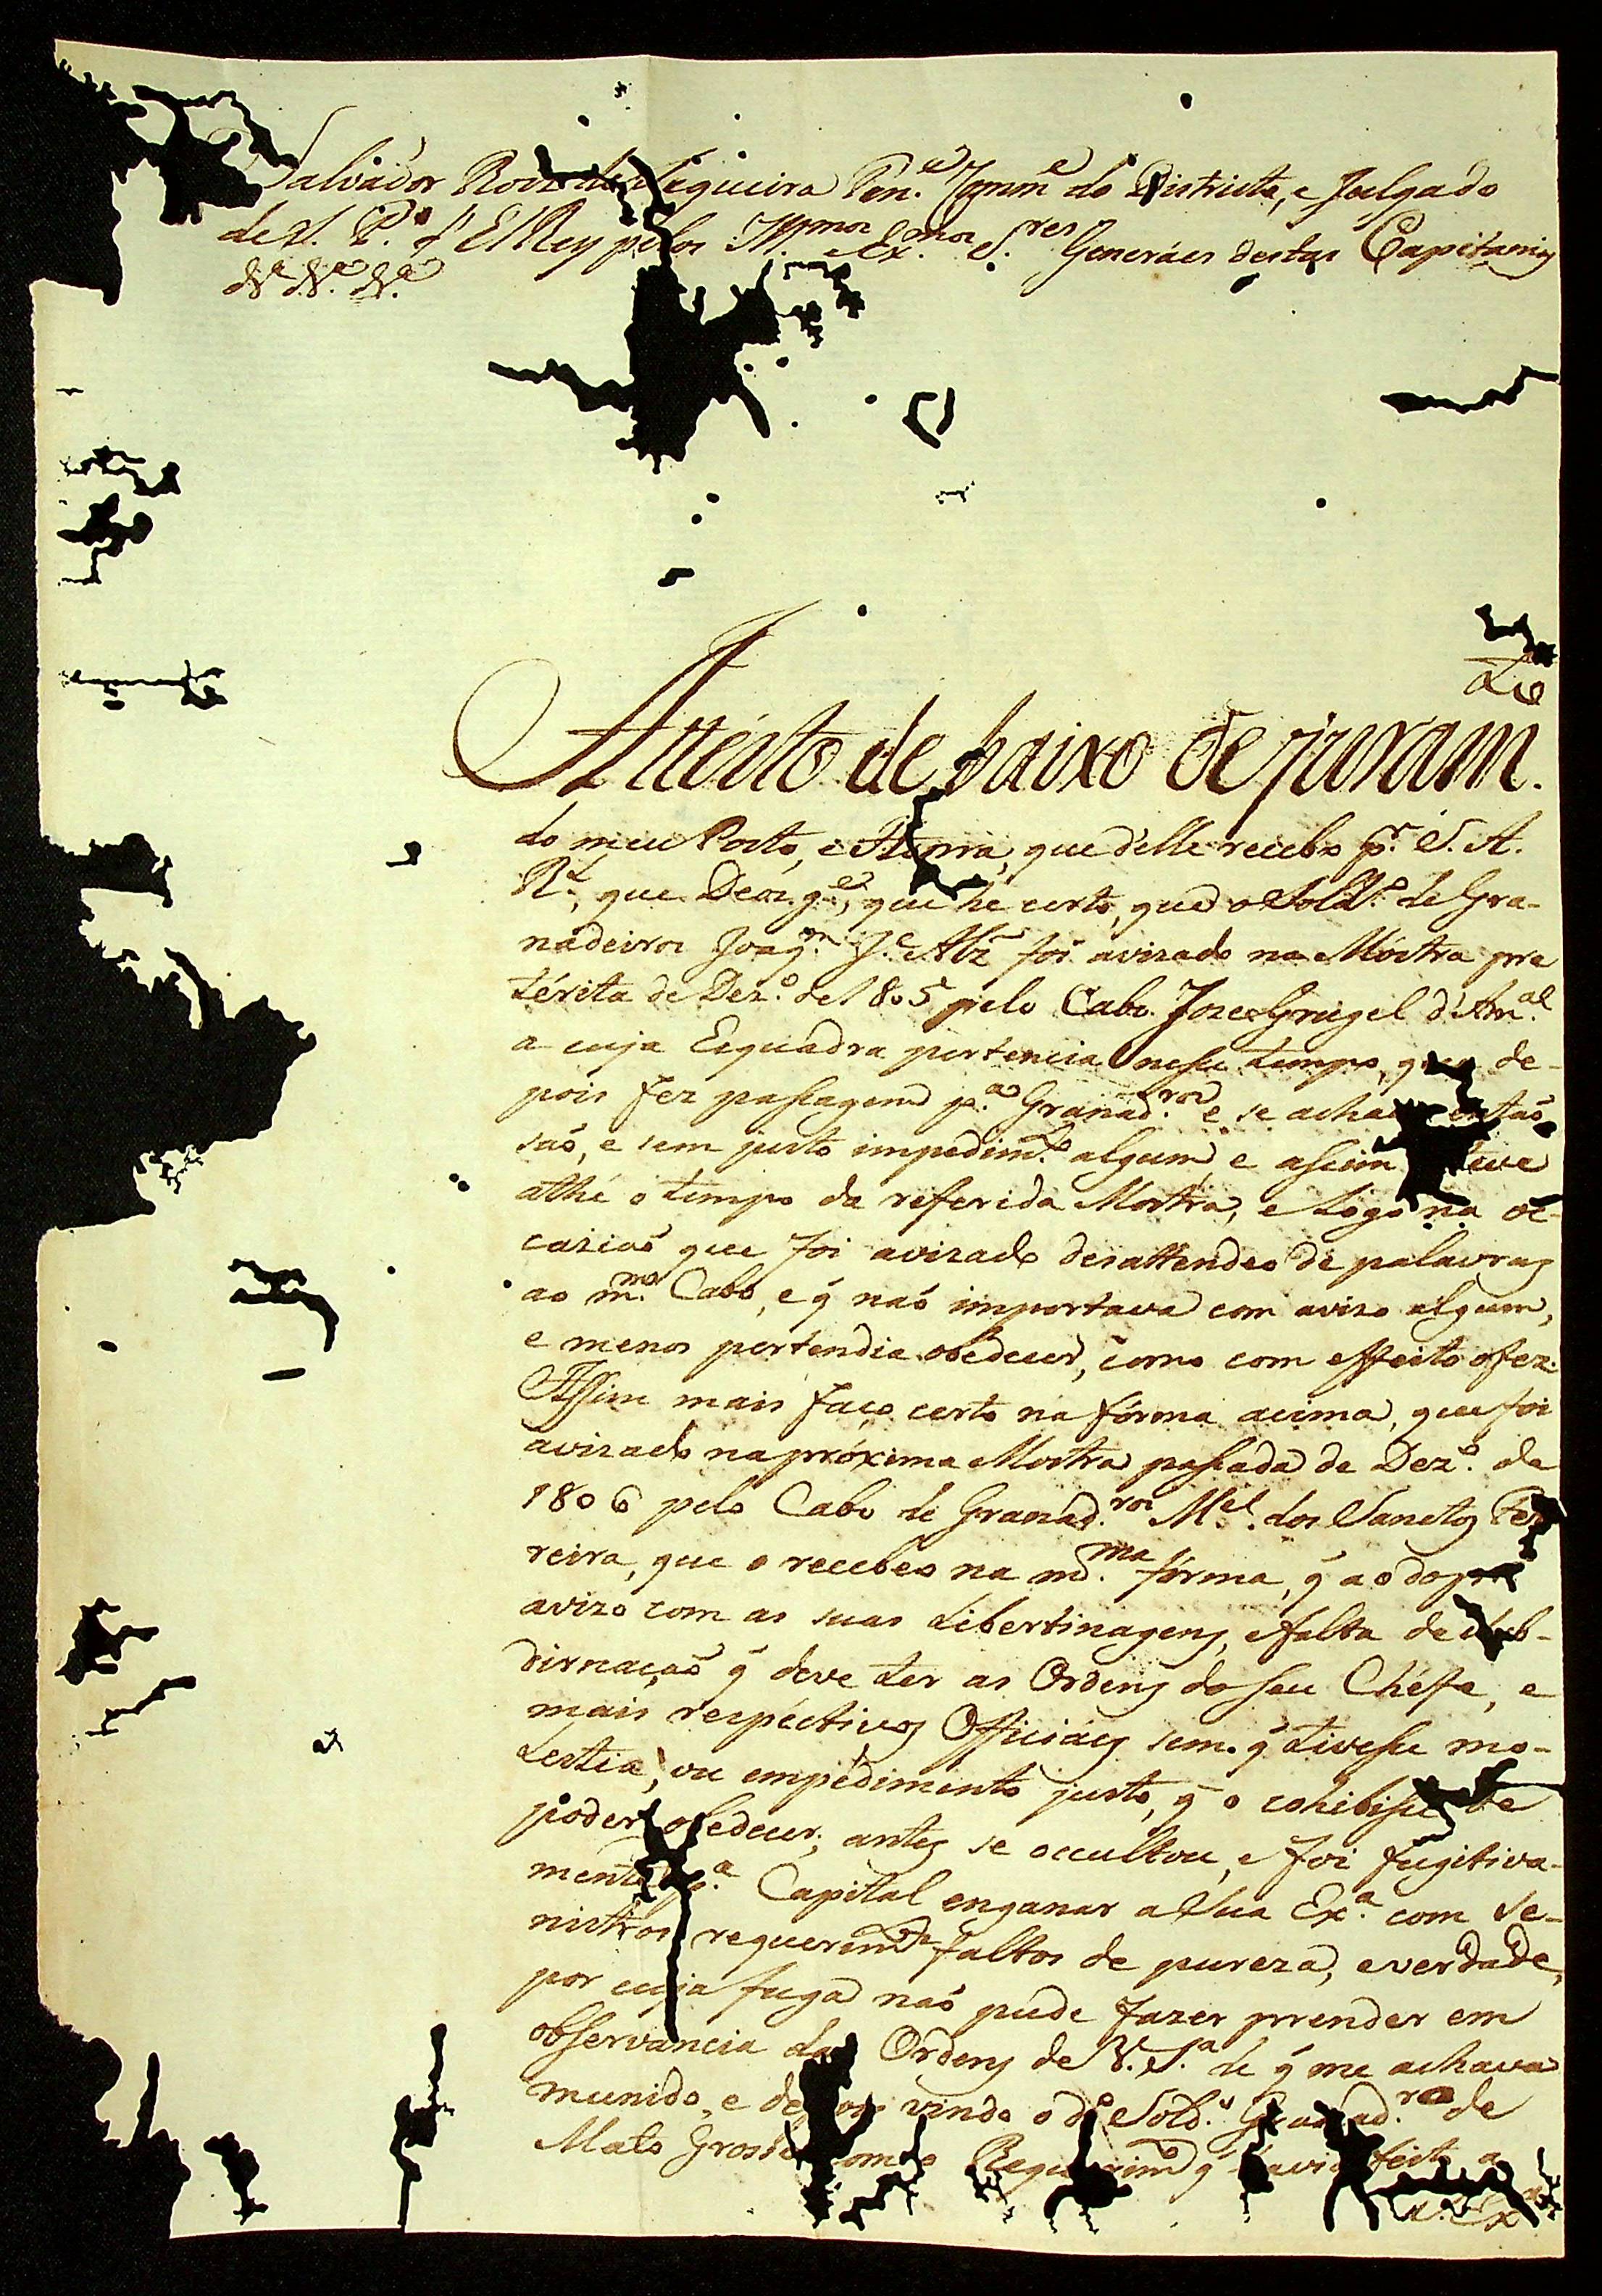 Salvador Roiz de Siqueira Ten.e Comm.e do Districto, e Julgado
de S. P.o d'El Rey pelos Ill.mos Ex.mos S.res Generáes destas Capitanias
&.a &.a &.a
to
Attésto de baixo de juram.
do meu Posto, e Honra, que d'elle recebo p.r S. A.
R.l, que Deos g.e, que hé certo, que o Sold.o de Gra-
nadeiros Joaq.m J.e Alz foi avisado na Móstra pre
térita de Dez.o de 1805 pelo Cabo Joze Gurgel d'Am.al
a cuja Esquadra pertencia nesse tempo, que de-
pois fez passagem p.a Granad.ros e se achava entaõ
saõ, e sem justo impedim.to algum e assim esteve
athé o tempo da referida Mostra, e logo na oc-
casiaõ que foi avisado desattendeo de palavras
ao m.mo Cabo, e q̃ naõ importava com aviso algum,
e menos pertendia obedecer, como com effeito o fez.
Assim mais faço certo na fórma acima, que foi
avisado na próxima Mostra passada de Dez.o de
1806 pelo Cabo de Granad.ros M.el dos Sanctos Fer
reira, que o recebeo na m.ma fórma, q̃ aodo pr.o
aviso com as suas Libertinagens, e falta de sub-
dirnaçaõ q̃ deve ter as Ordens do seu Chéffe, e
mais respéctivos Officiáes sem q̃ tivesse mo-
lestia, ou empedimento justo, q̃ o cohibisse de
poder obedecer; antes se occultou, e foi fugitiva-
mente p.a Capital enganar a Sua Ex.a com se-
nistros requerim.tos faltos de pureza, e verdade,
por cuja fuga naõ pude fazer prender em
observancia das Ordens de V. S.a de q̃ me achava
munido, e depois vindo o d.o Sold.o Granad.ro de
Mato Grosso com o Requerim.to q̃ havia feito a
S. Ex.a